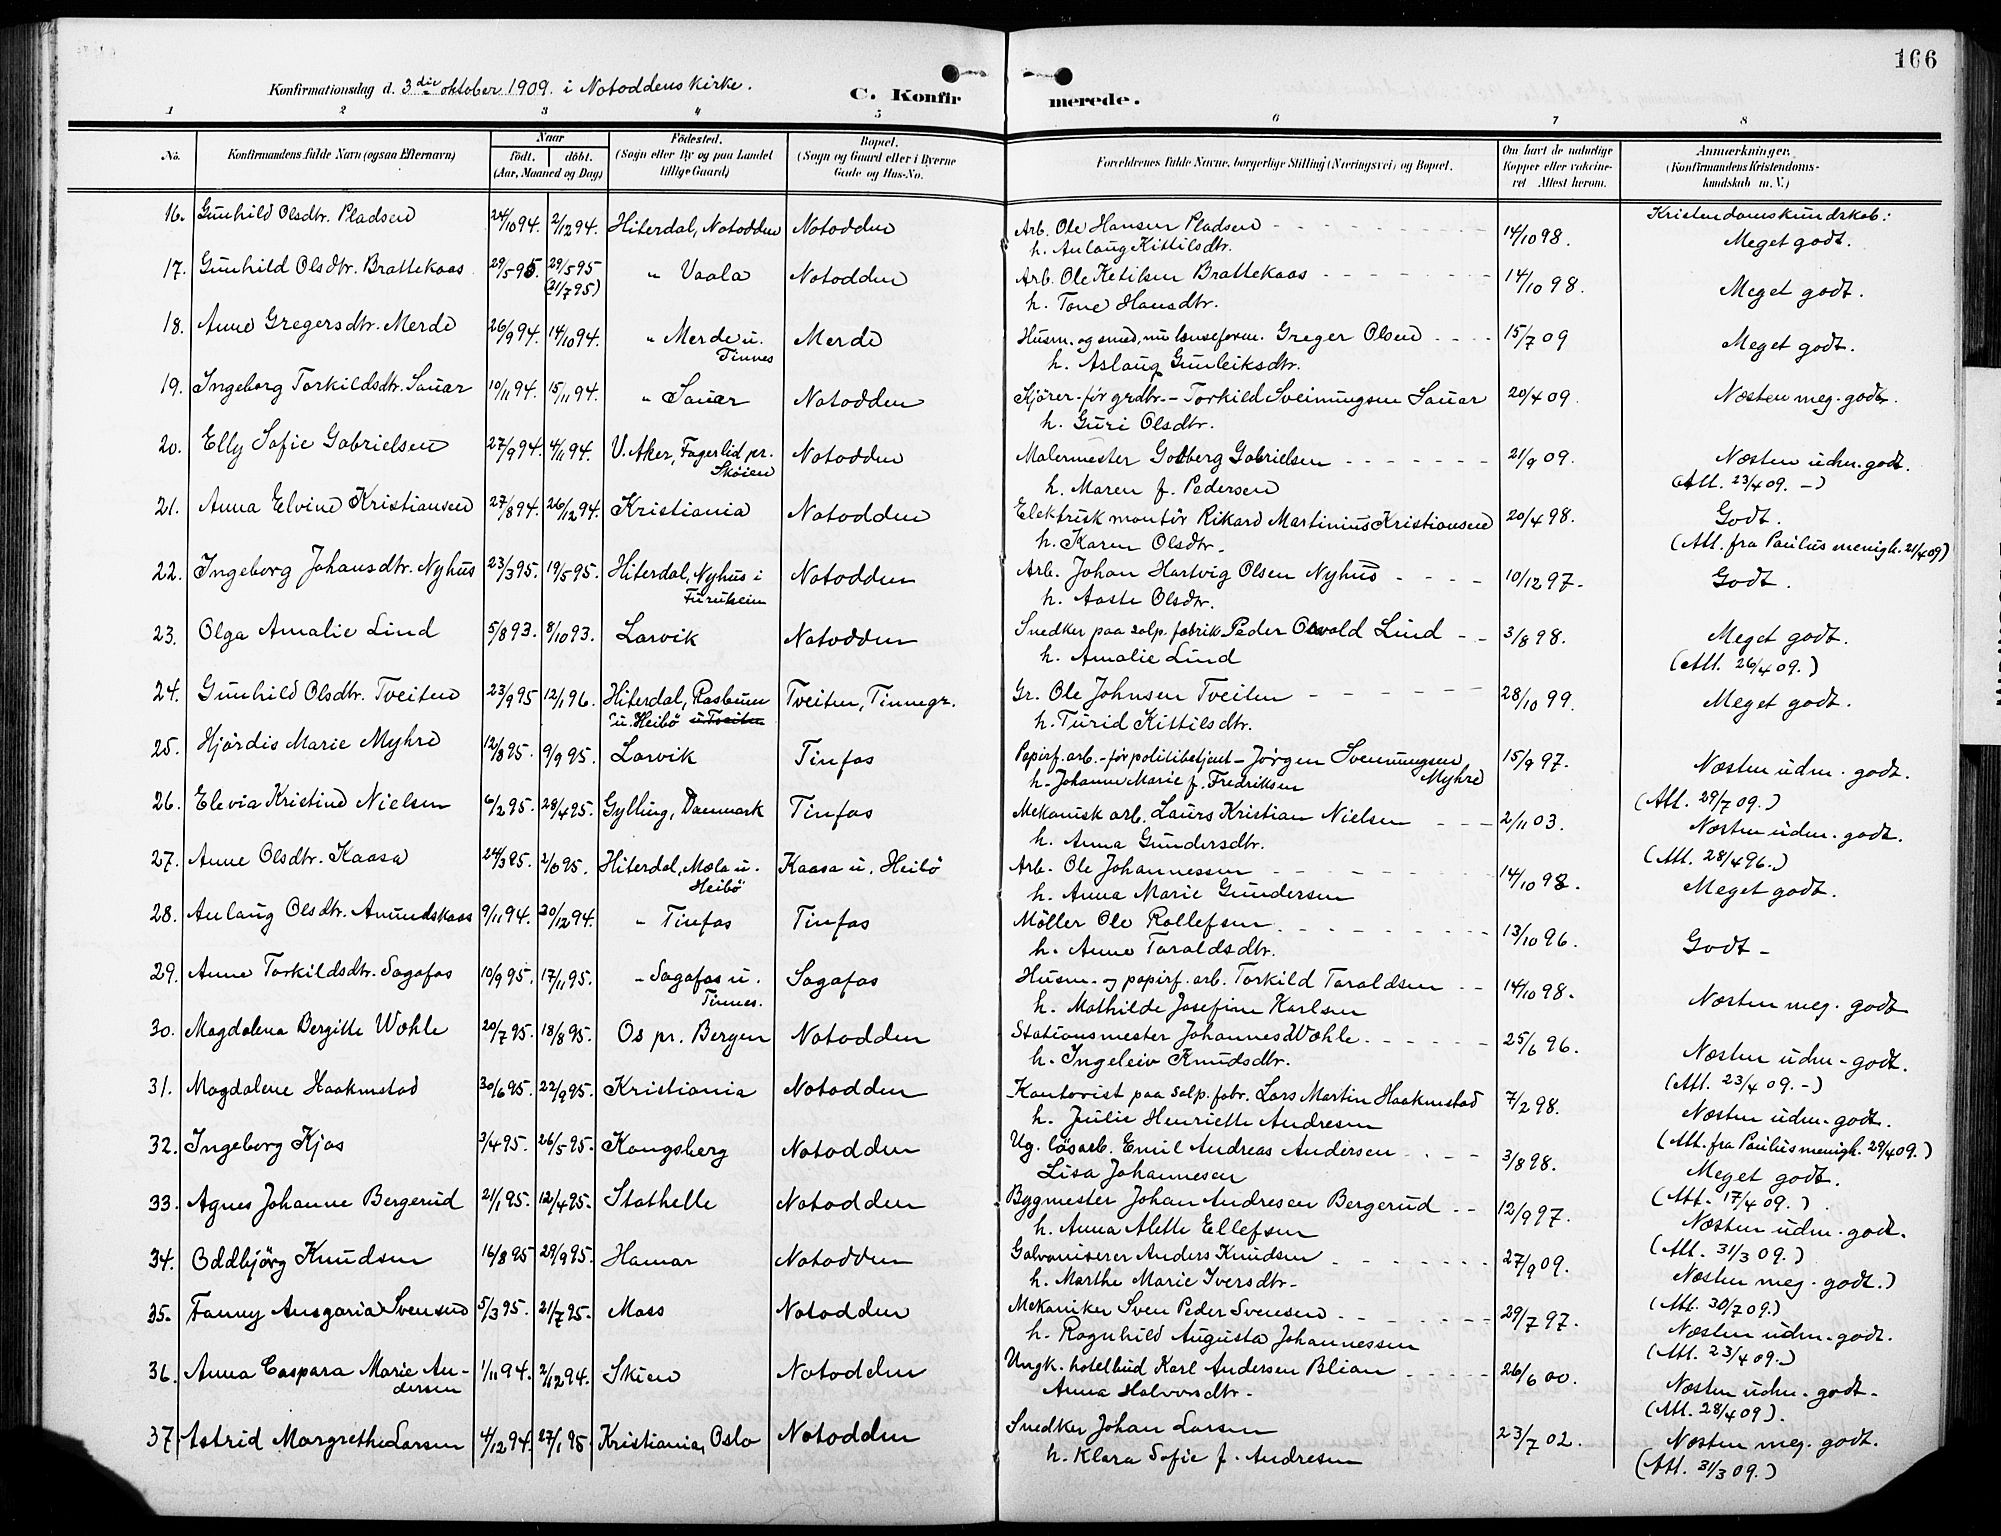 166
Konfirmationsdag d. 3die oktober 1909. i Notoddens kirke.
C. Konfir merede.
1 2 3 4 5 6 7 8
No. Konfirmandens fulde Navn (ogsaa Efternavn) Naar født. døbt. (Aar, Maaned og Dag) Fødested. (Sogn eller By og paa Landet tillige Gaard) Bopæl. (Sogn og Gaard eller i Byerne Gade og Hus-No. Forældrenes fulde Navne, borgerlige Stilling (Næringsvei) og Bopæl. Om havt de naturlige Kopper eller vakcineret Attest herom. Anmærkninger. (Konfirmandens Kristendomskundskab m. V.)
Kristendomskundskab:
16. Gunhild Olsdtr. Pladsen 24/10 94. 2/12 94. Hiterdal, Notodden Notodden Arb. Ole Hansen Pladsen 14/10 98. Meget godt.
h. Anlaug Kittilsdtr.
17. Gunhild Olsdtr. Brattekaas 29/5 95. 29/5 95 " Vaala Notodden Arb. Ole Ketilsen Brattekaas 14/10 98. Meget godt.
(21/7 95) h. Tone Hansdtr.
18. Anne Gregersdtr. Merde 26/9 94. 14/10 94. " Merde u. Tinnes Merde Husm. og smed, nu lænseform. Greger Olsen 15/7 09 Meget godt.
h. Aslaug Gunleiksdtr.
19. Ingeborg Torkildsdtr. Sauar 10/11 94. 15/11 94. " Sauar Notodden Kjører - før grdbr. - Torkild Sveinungsen Sauar 20/4 09. Næsten meg. godt.
h. Guri Olsdtr.
20. Elly Sofie Gabrielsen 27/9 94. 4/11 94. V. Aker, Fagerlid pr. Skøien Notodden Malermester Gotberg Gabrielsen 21/9 09. Næsten udm. godt.
h. Maren f. Pedersen (Att. 23/4 09. -)
21. Anna Elvine Kristiansen 27/8 94. 26/12 94. Kristiania Notodden Elektrisk montør Rikard Martinius Kristiansen 20/4 98. Godt.
h. Karen Olsdtr. (Att. fra Paulus menigh. 21/4 09)
22. Ingeborg Johansdtr. Nyhus 23/3 95. 19/5 95. Hiterdal, Nyhus i Furuheim Notodden Arb. Johan Hartvig Olsen Nyhus 10/12 97. Godt.
h. Aaste Olsdtr.
23. Olga Amalie Lind 5/8 93. 8/10 93. Larvik Notodden Snedker paa salp. fabrik Peder Osvald Lind 3/8 98. Meget godt.
h. Amalie Lind (Att. 26/4 09.)
24. Gunhild Olsdtr. Tveiten 23/9 95 12/1 96. Hiterdal, Rasbuen u. Heibø u. Tveiten Tveiten, Tinnegr. Gr. Ole Johnsen Tveiten 28/10 99. Meget godt.
h. Turid Kittilsdtr.
25. Hjørdis Marie Myhre 12/8 95. 9/9 95. Larvik Tinfos Papirf. arb. - før politibetjent - Jørgen Svenningsen Myhre 15/9 97. Næsten udm. godt.
h. Johanne Marie f. Fredriksen (Att. 29/7 09.)
26. Elevia Kristine Nielsen 6/2 95. 28/4 95. Gylling, Danmark Tinfos Mekanisk arb. Laurs Kristian Nielsen 2/11 03. Næsten udm. godt.
h. Anna Gundersdtr. (Att. 28/4 96.)
27. Anne Olsdtr. Kaasa 24/3 95. Hiterdal, Mæla u. Heibø Kaasa u. Heibö Arb. Ole Johannessen 14/10 98. Meget godt.
h. Anna Marie Gundersen
28. Anlaug Olsdtr. Anundskaas 9/11 94. 30/12 94. " Tinfos Tinfos Möller Ole Rollefsen 13/10 96. Godt -
h. Anne Taraldsdtr.
29. Anne Torkildsdtr. Sagafos 10/9 95. 17/11 95. " Sagafos u. Tinnes. Sagafos Husm. og papirf. arb. Torkild Taraldsen 14/10 98. Næsten meg. godt
h. Mathilde Josefine Karlsen
30. Magdalena Bergitte Wohle 20/7 95. 18/8 95. Os pr. Bergen Notodden Stationsmester Johannes Wohle 25/6 96. Næsten udm. godt.
h. Ingeleiv Knudsdtr. (Att. 23/4 09. -)
31. Magdalene Haakenstad 30/6 95. 22/9 95. Kristiania Notodden Kontorist paa salp. fabr. Lars Martin Haakenstad 7/2 98. Næsten udm. godt.
h. Julie Henriette Andresen (Att. fra Paulus menigh. 29/4 09.)
32. Ingeborg Kjos 3/4 95. 26/5 95. Kongsberg Notodden Ug. løsarb. Emil Andreas Andersen 3/8 98. Meget godt.
Lisa Johannesen (Att. 17/4 09.)
33. Agnes Johanne Bergerud 21/1 95. 12/4 95. Stathelle Notodden Bygmester Johan Andresen Bergerud 12/9 97. Næsten udm. godt.
h. Anna Alette Ellefsen (Att. 31/3 09.)
34. Oddbjörg Knudsen 16/8 95 29/9 95. Hamar Notodden Galvaniserer Anders Knudsen 27/9 09. Næsten meg. godt.)
h. Marthe Marie Iversdtr. (Att. 30/7 09.)
35. Fanny Ansgaria Svensen 5/3 95. 21/7 95. Moss Notodden Mekaniker Sven Peder Svensen 29/7 97. Næsten udm. godt.
h. Ragnhild Augusta Johannessen (Att. 23/4 09.)
36. Anna Caspara Marie Andersen 1/11 94. 2/12 94. Skien Notodden Ungk. hotelbud Karl Andersen Blian 26/6 00. Næsten udm. godt.
Anna Halvorsdtr. (Att. 28/4 09).
37. Astrid Margrethe Larsen 4/12 94. 27/1 95. Kristiania, Oslo Notodden Snedker Johan Larsen 23/7 02. Næsten meg. godt.
h. Klara Sofie f. Andresen (Att. 31/3 09.)